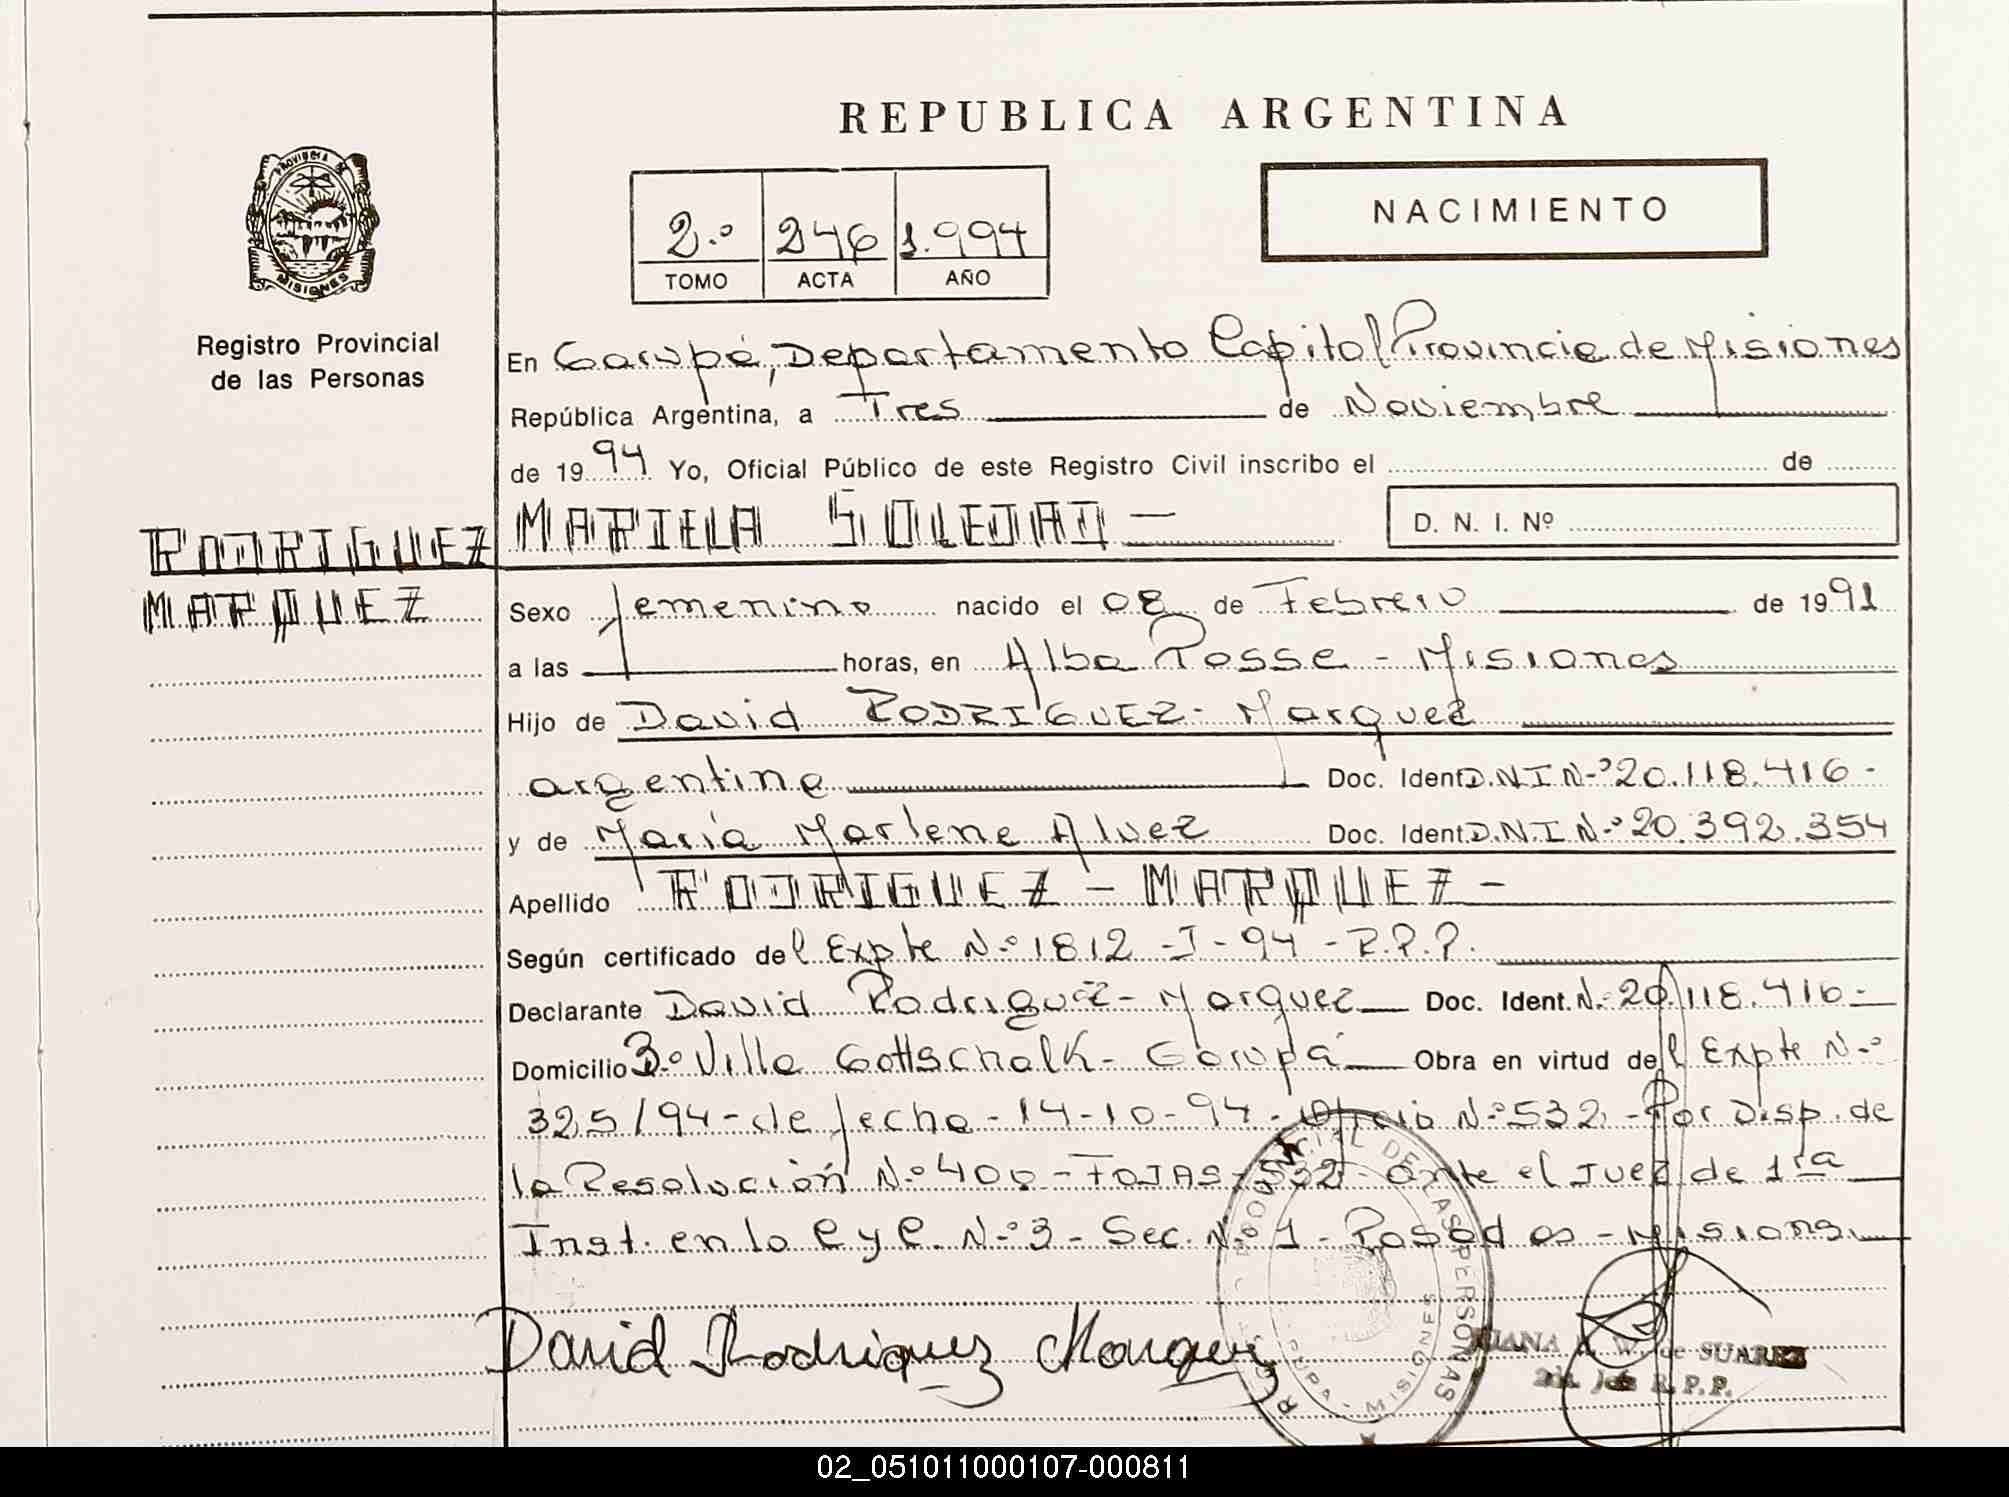 REPUBLICA ARGENTINA
PROVINCIA DE MISIONES
Registro Provincial
de las Personas
2.º 246 1.994
TOMO ACTA AÑO
NACIMIENTO
En Garupá, Departamento Capital Provincia de Misiones
República Argentina, a Tres de Noviembre
de 1994 Yo, Oficial Público de este Registro Civil inscribo el de
RODRIGUEZ
MARQUEZ
MARIELA SOLEDAD —
D. N. I. Nº
Sexo femenino nacido el 08 de Febrero de 1991
a las horas, en Alba Posse - Misiones
Hijo de David RODRIGUEZ - Marquez
argentina Doc. Ident D.N.I N-º 20.118.416 -
y de María Marlene Alvez Doc. Ident. D.N.I N-º 20.392.354
Apellido RODRIGUEZ - MARQUEZ -
Según certificado del Expte N-º 1812 - I - 94 - R.P.P.
Declarante David Rodriguez - Marquez Doc. Ident. N-º 20.118.416 -
Domicilio Bº Villa Gottschalk - Garupá Obra en virtud del Expte N-º
325/94 - de fecha - 14-10-94 - Oficio N-º 532 - Por Disp. de
la Resolución N-º 400 - FOJAS - 532 - ante el Juez de 1ra
Inst. en lo C y C. N-º 3 - Sec. N-º 1 - Posadas - Misiones.
David Rodriguez Marquez
PROVINCIAL DE LAS PERSONAS
MISIONES
JUANA W. de SUAREZ
R. P. P.
02_051011000107-000811